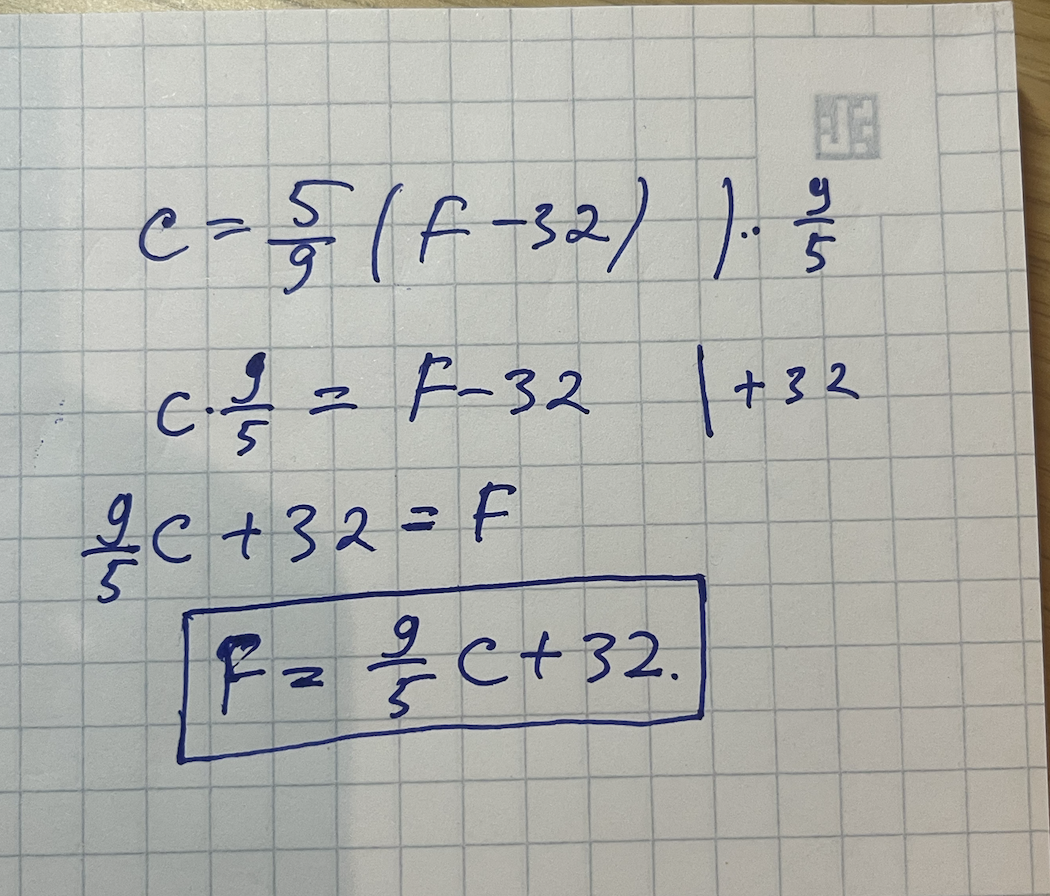 C = 5/9 (F - 32) | · 9/5
C · 9/5 = F - 32 | + 32
9/5 C + 32 = F
F = 9/5 C + 32.